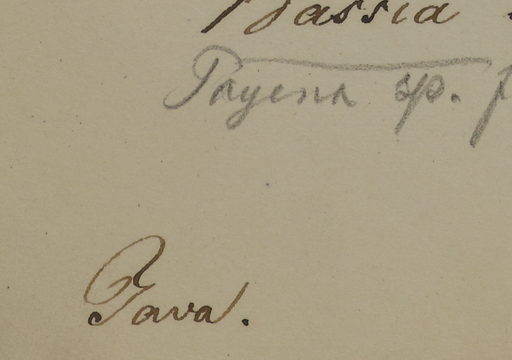 Bassia
Payena sp.
Java.